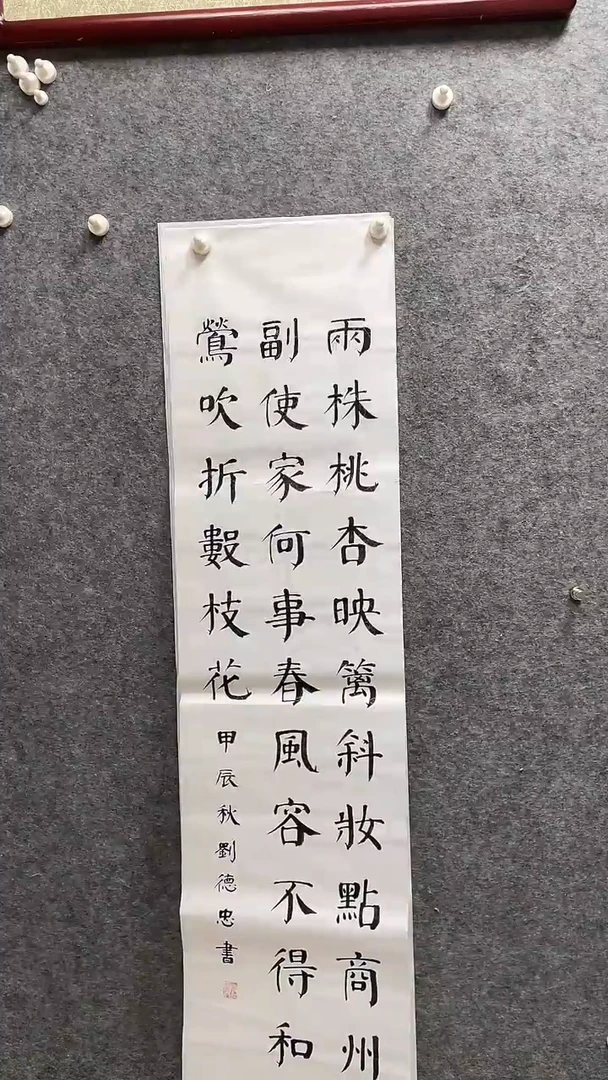 兩株桃杏映篱斜妝點商州
副使家何事春風容不得和
鶯吹折數枝花
甲辰秋劉德忠書